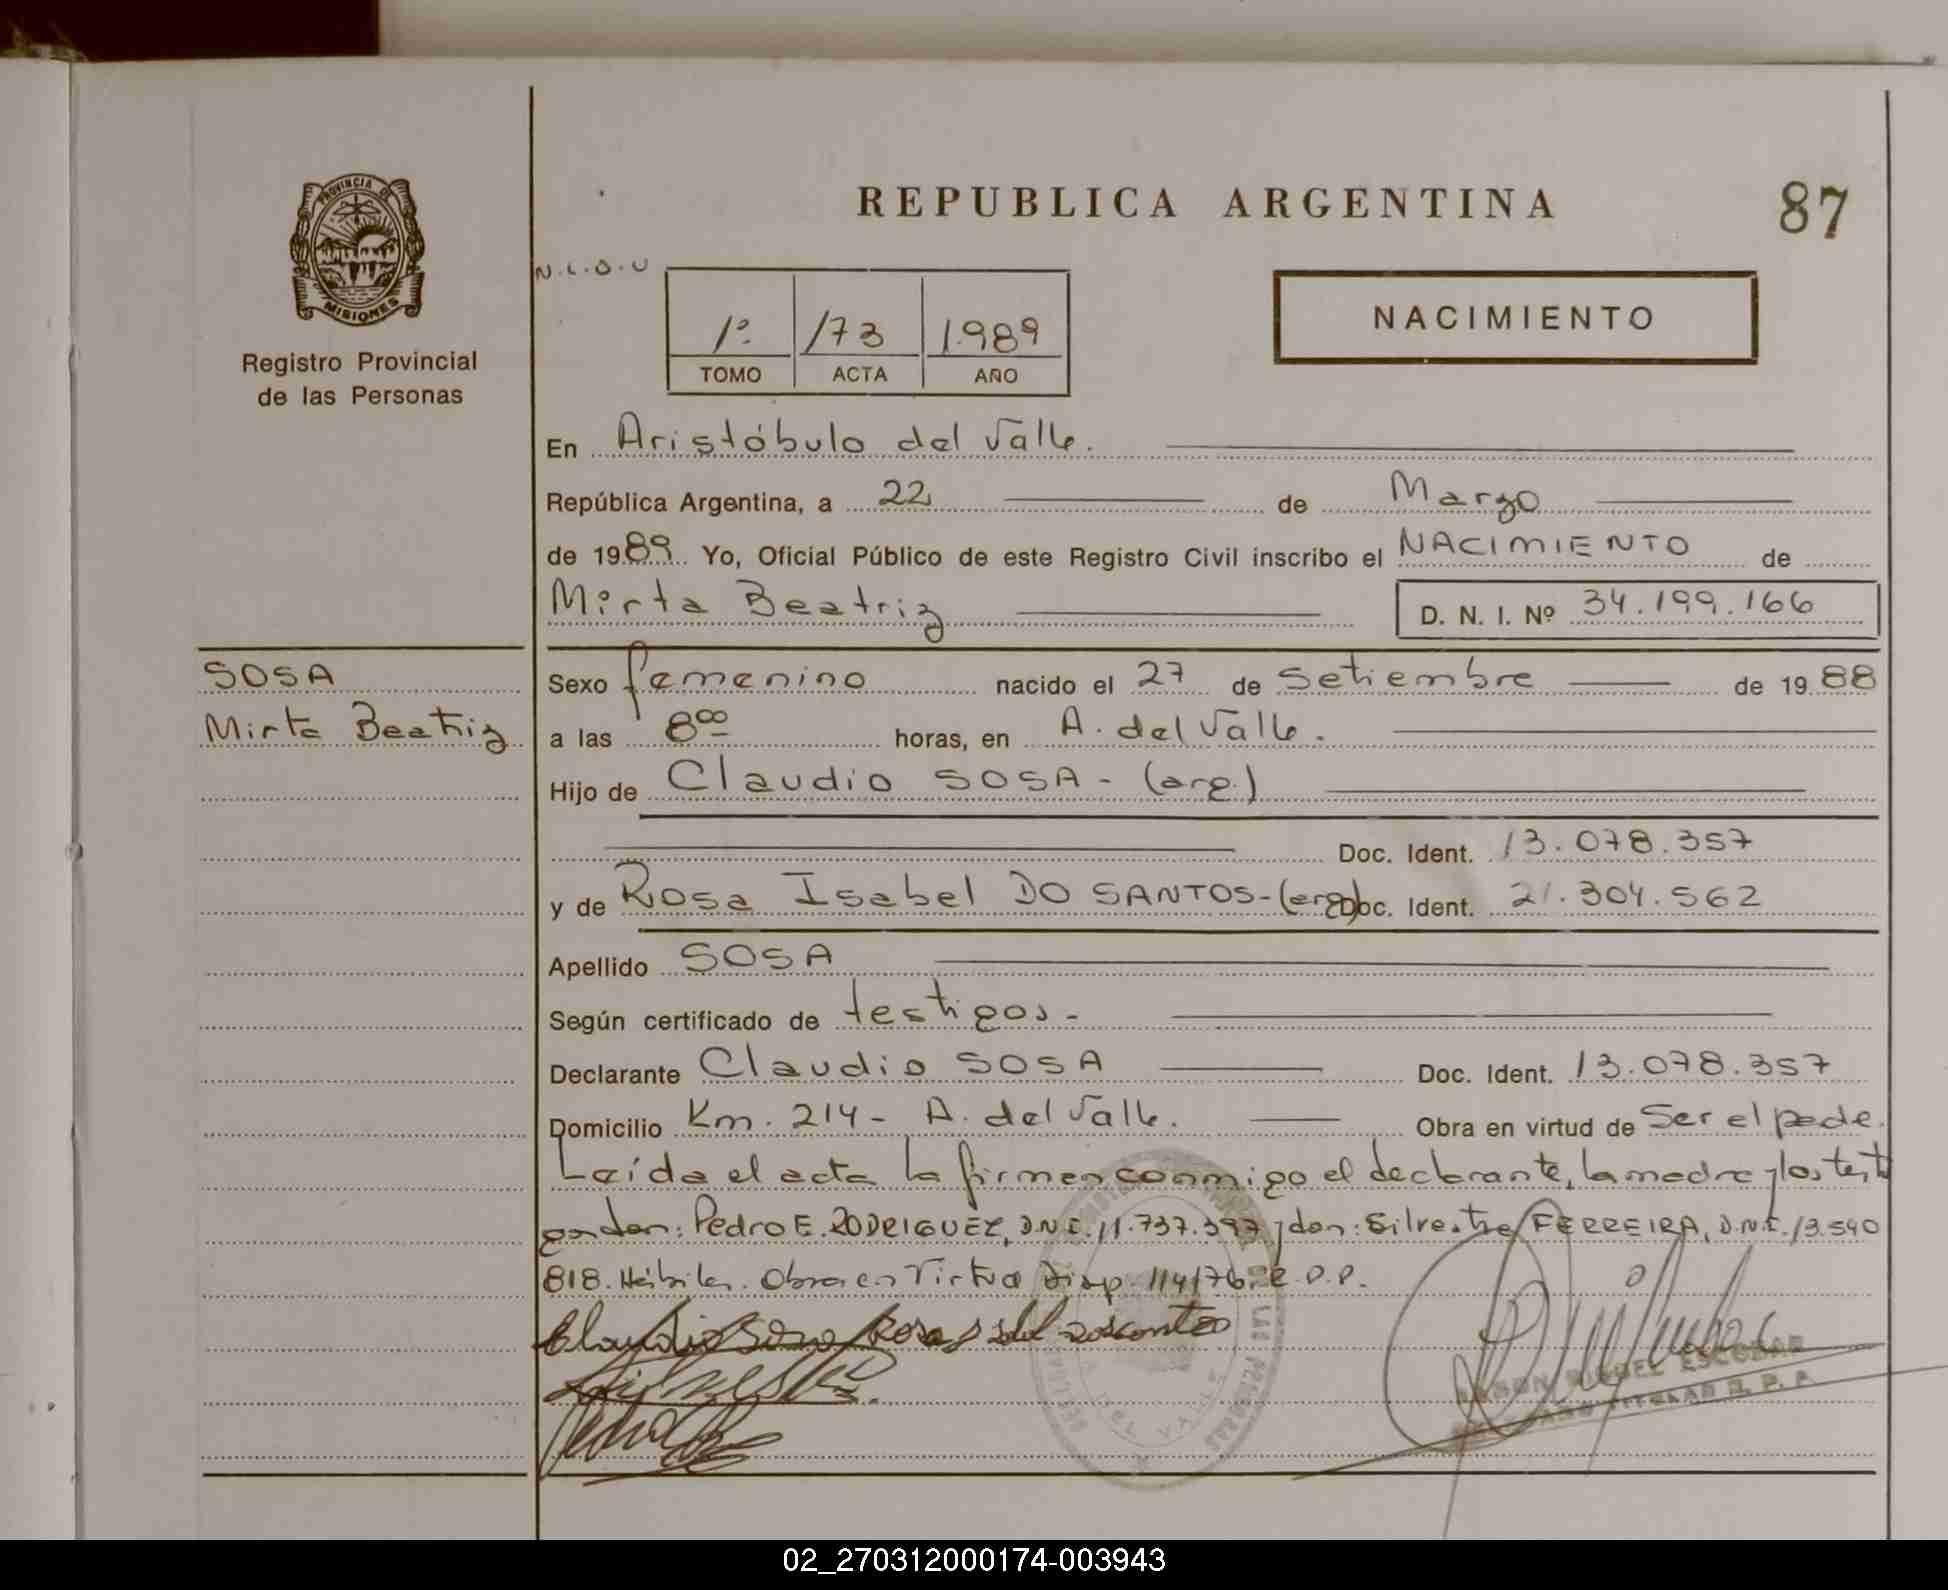 REPUBLICA ARGENTINA
87
PROVINCIA DE
MISIONES
Registro Provincial
de las Personas
N.L.O.U
1º 173 1.989
TOMO ACTA AÑO
NACIMIENTO
En Aristóbulo del Valle.
República Argentina, a 22 de Marzo
de 1989 Yo, Oficial Público de este Registro Civil inscribo el NACIMIENTO de
Mirta Beatriz D. N. I. Nº 34.199.166
SOSA
Mirta Beatriz
Sexo femenino nacido el 27 de Setiembre de 1988
a las 8⁰⁰ horas, en A. del Valle.
Hijo de Claudio SOSA - (arg.)
Doc. Ident. 13.078.357
y de Rosa Isabel DO SANTOS - (arg) Doc. Ident. 21.304.562
Apellido SOSA
Según certificado de testigos -
Declarante Claudio SOSA Doc. Ident. 13.078.357
Domicilio Km. 214 - A. del Valle. Obra en virtud de Ser el pade.
Leída el acta la firman conmigo el declarante, la madre y los testi
gos don: Pedro E. RODRIGUEZ, D.N.I. 11.737.397 y don: Silvestre FERREIRA, D.N.I. 13.540
818. Hábiles. Obra en Virtud Disp. 114/76. R.P.P.
Claudio Sosa Rosa
RAMON MIGUEL ESCOBAR
TITULAR R. P. P.
DEL VALLE
02_270312000174-003943